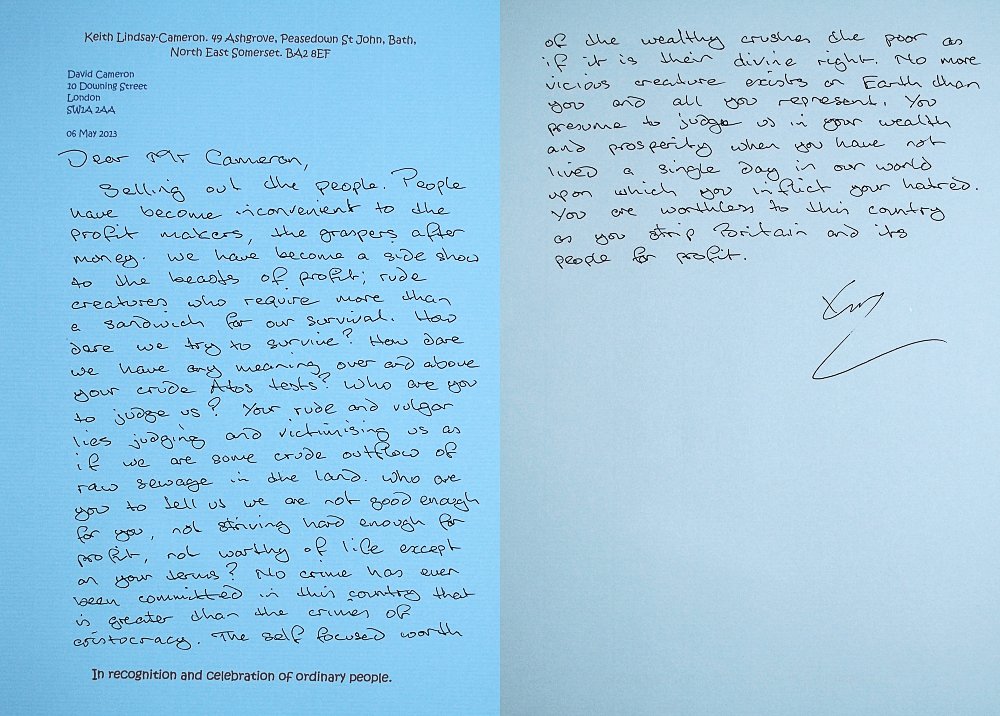 Keith Lindsay-Cameron. 49 Ashgrove, Peasedown St John, Bath,
North East Somerset. BA2 8EF
David Cameron
10 Downing Street
London
SW1A 2AA
06 May 2013
Dear Mr Cameron,
Selling out the people. People
have become inconvenient to the
profit makers, the graspers after
money. We have become a side show
to the beasts of profit; rude
creatures who require more than
a sandwich for our survival. How
dare we try to survive? How dare
we have any meaning over and above
your crude Atos tests? Who are you
to judge us? Your rude and vulgar
lies judging and victimising us as
if we are some crude outflow of
raw sewage in the land. Who are
you to tell us we are not good enough
for you, not striving hard enough for
profit, not worthy of life except
on your terms? No crime has ever
been committed in this country that
is greater than the crimes of
aristocracy. The self focused worth
In recognition and celebration of ordinary people.
of the wealthy crushes the poor as
if it is their divine right. No more
vicious creature exists on Earth than
you and all you represent. You
presume to judge us in your wealth
and prosperity when you have not
lived a single day in our world
upon which you inflict your hatred.
You are worthless to this country
as you strip Britain and its
people for profit.